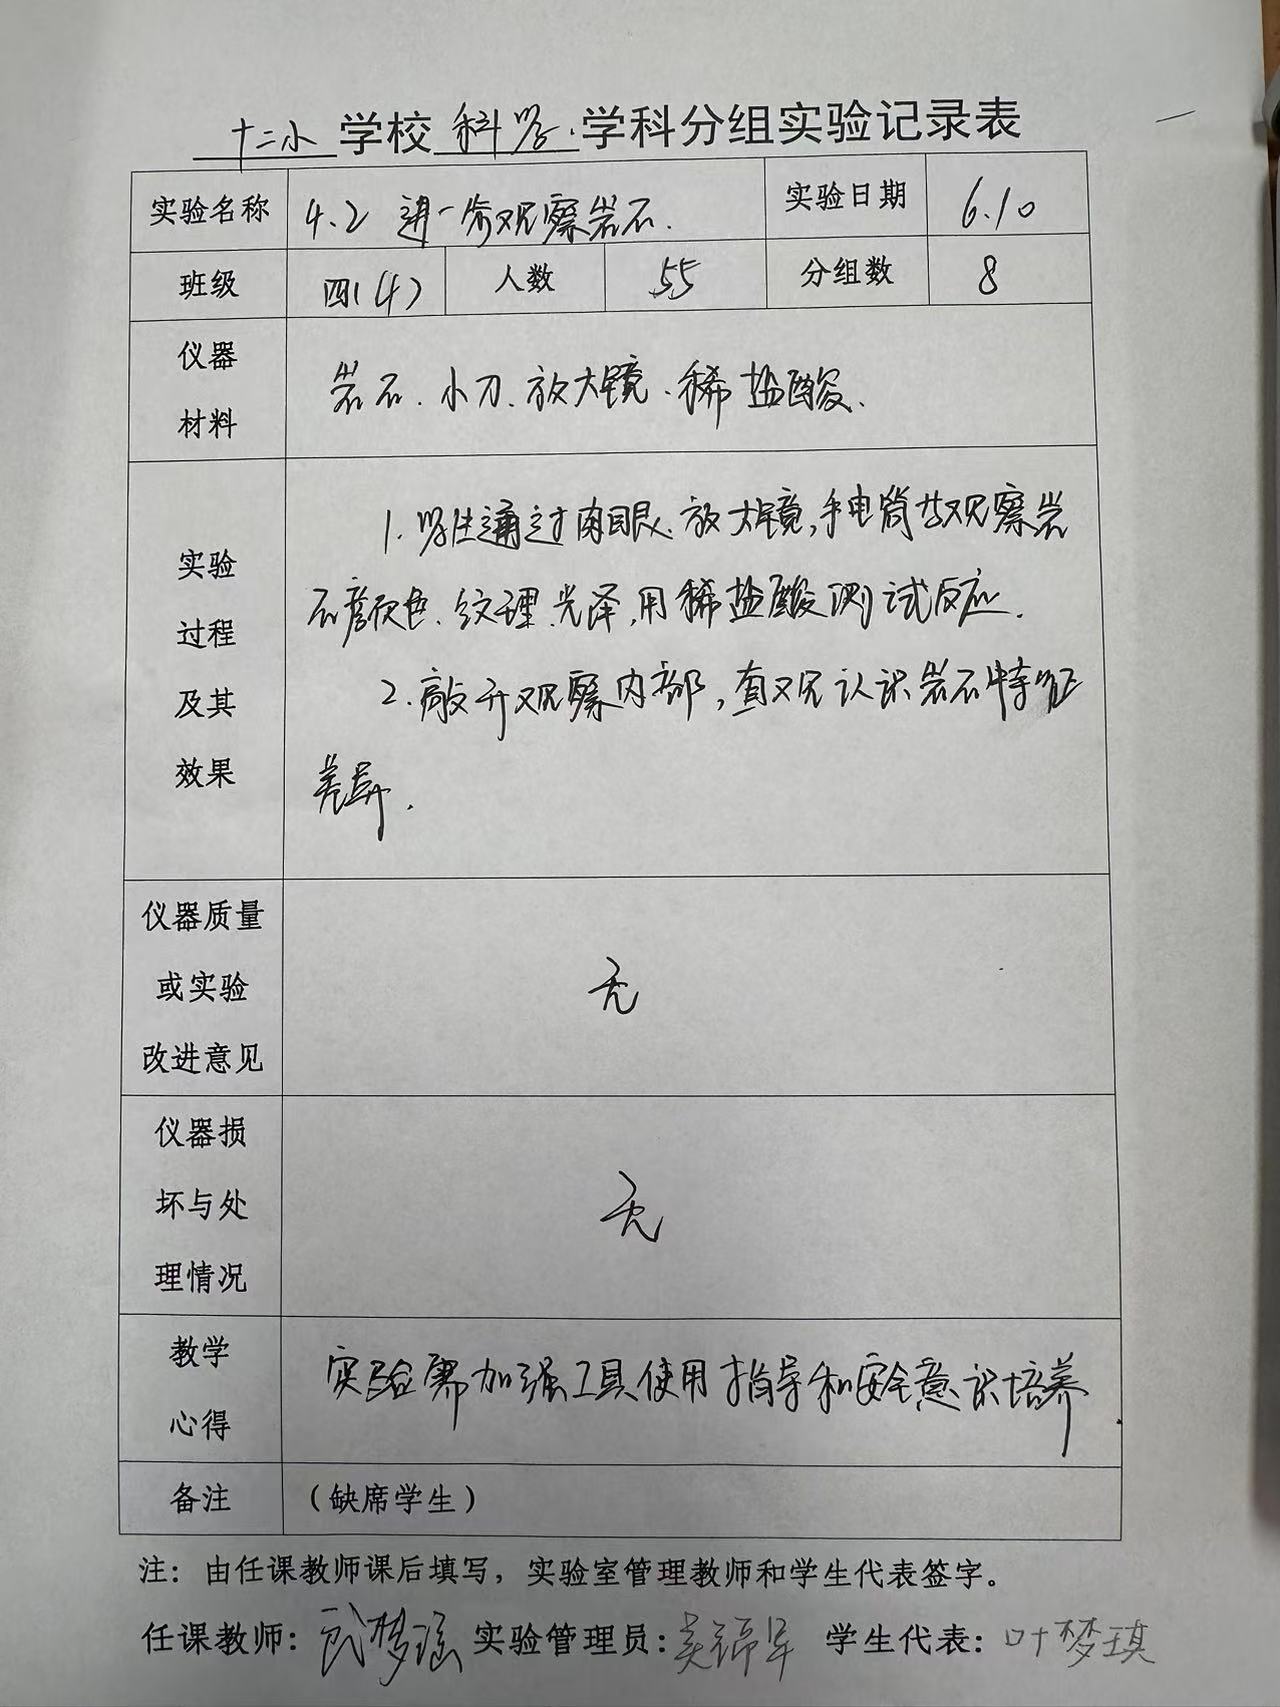 十二小 学校 科学 学科分组实验记录表
实验名称 4.2 进一步观察岩石. 实验日期 6.10
班级 四(4) 人数 55 分组数 8
仪器
材料
岩石、小刀、放大镜、稀盐酸.
实验
过程
及其
效果
1. 学生通过肉眼、放大镜,手电筒共观察岩
石颜色、纹理、光泽,用稀盐酸测试反应.
2. 敲开观察内部,直观认识岩石特征
差异.
仪器质量
或实验
改进意见
无
仪器损
坏与处
理情况
无
教学
心得
实验需加强工具使用指导和安全意识培养
备注 (缺席学生)
注:由任课教师课后填写,实验室管理教师和学生代表签字。
任课教师: 梦瑶 实验管理员: 学生代表: 叶梦琪